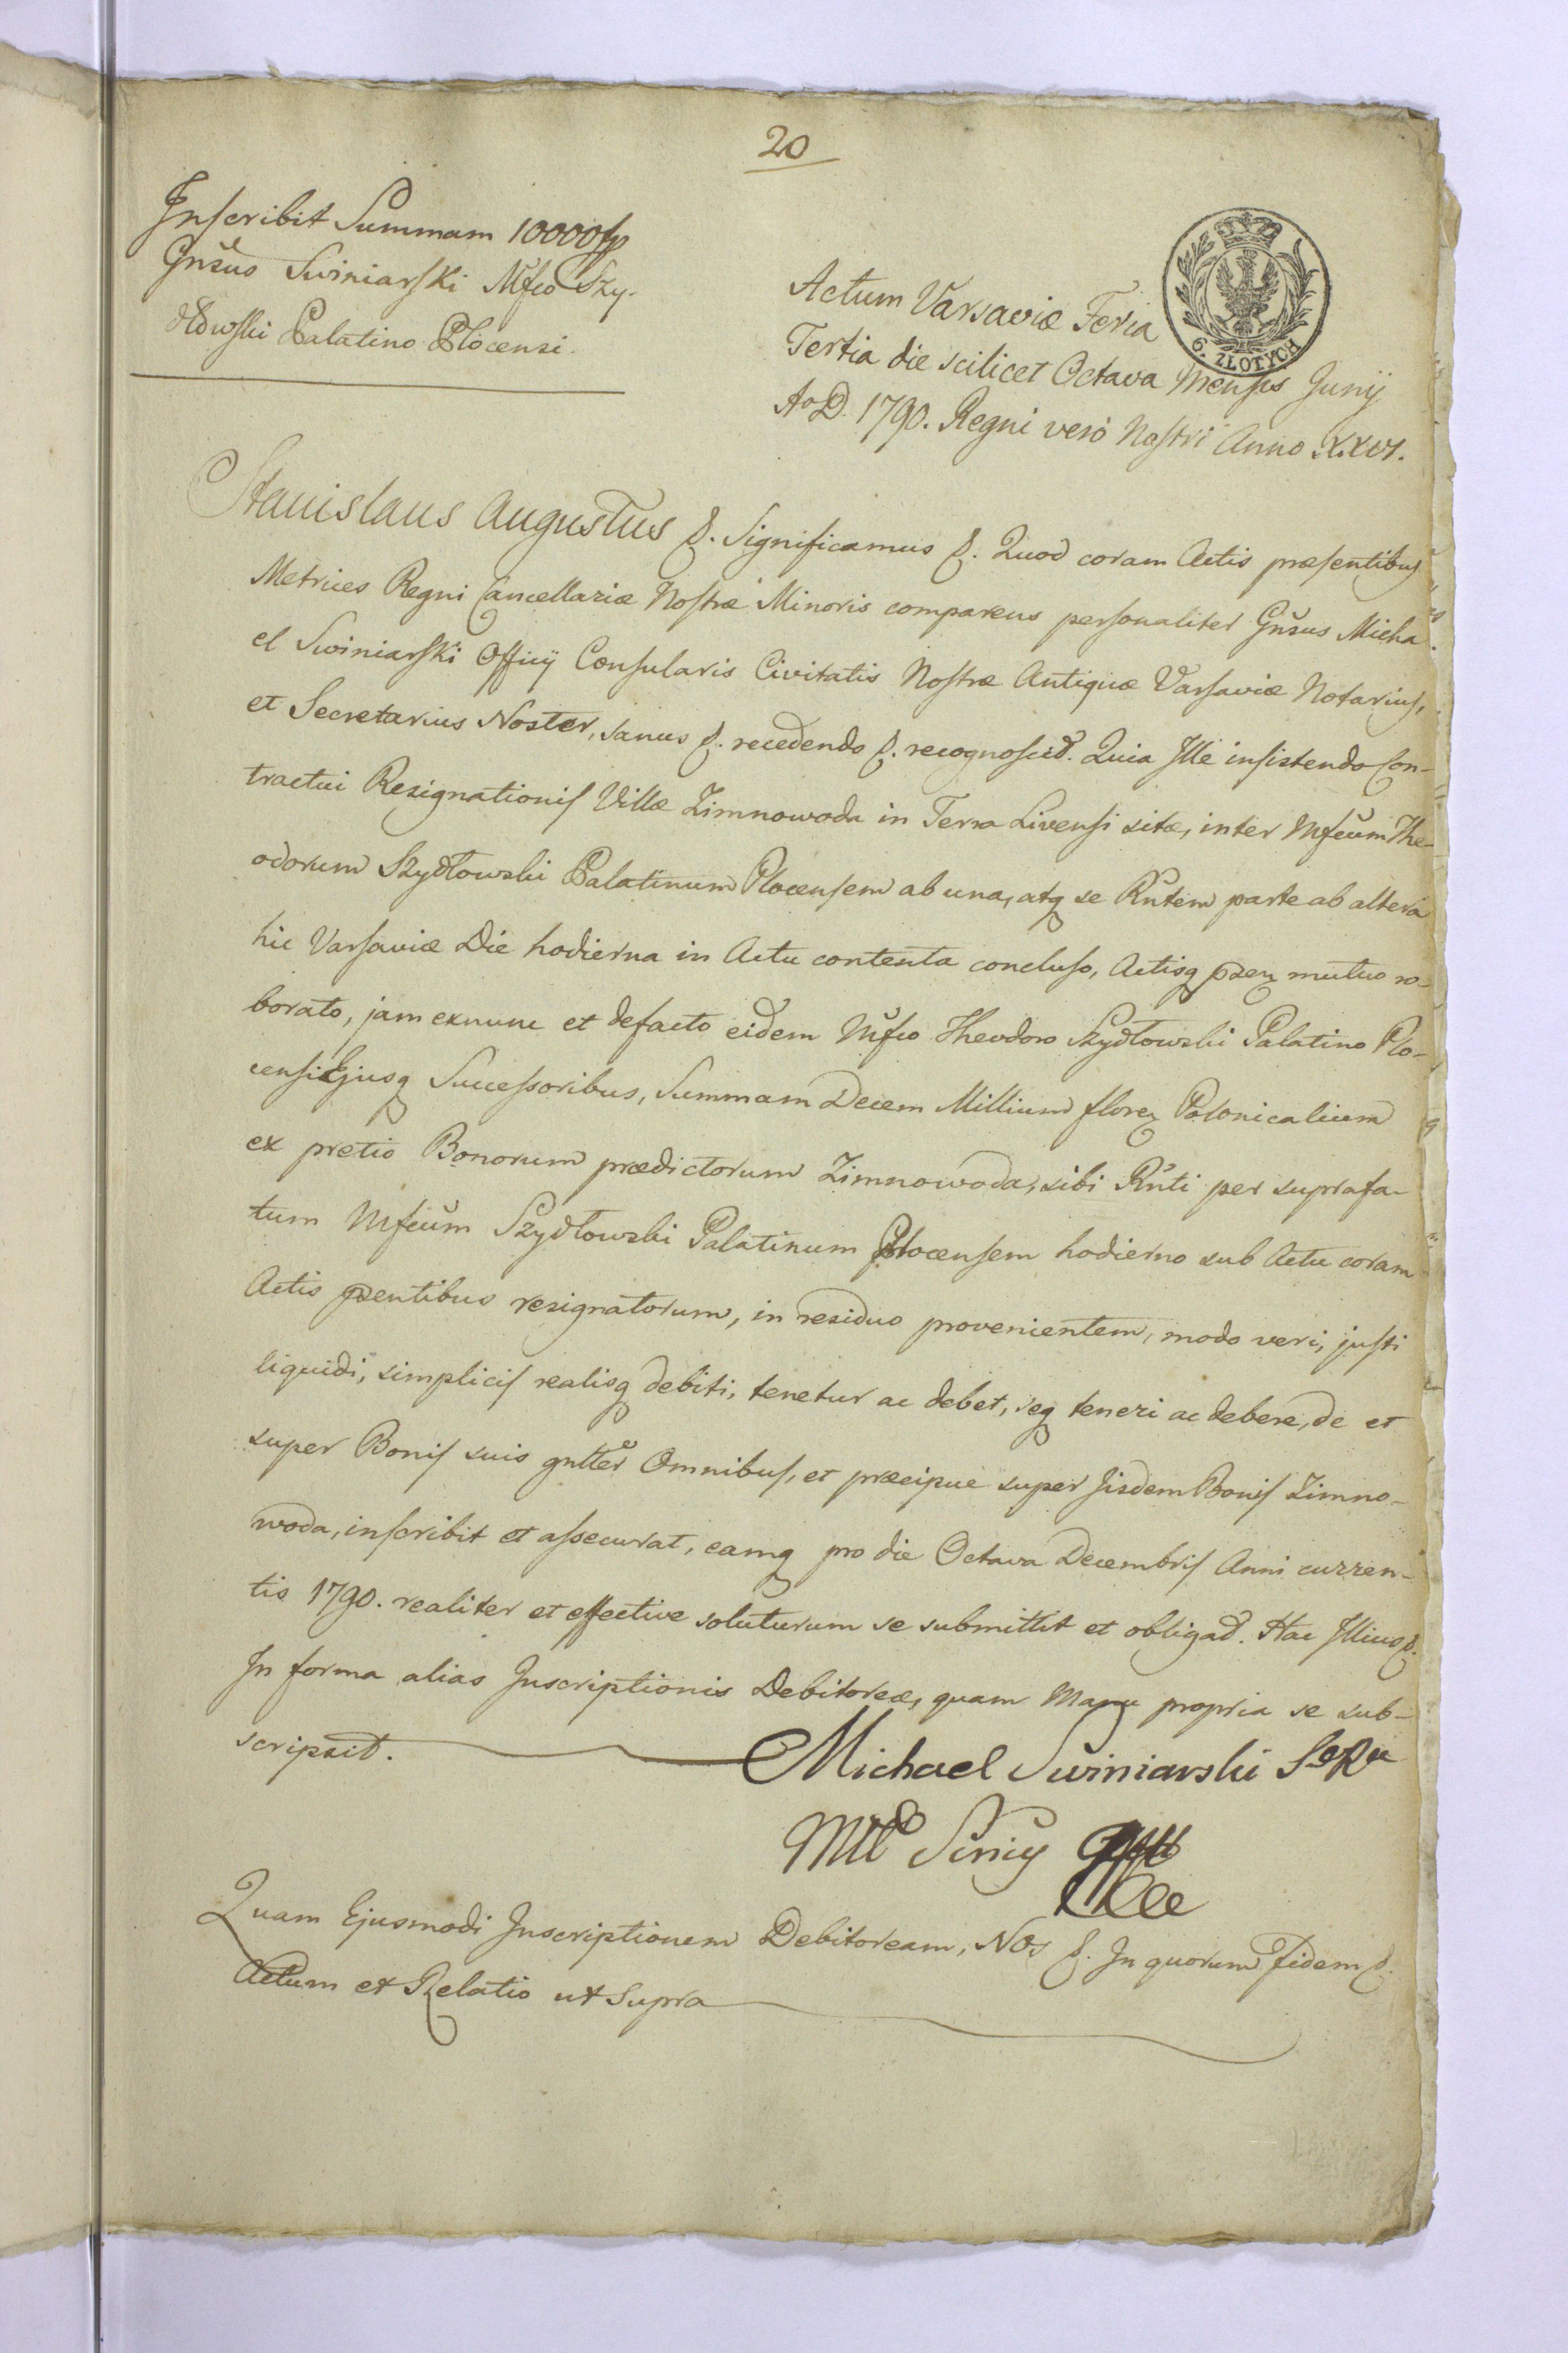 20
Inscribit Summam 10000 fp
Gnsus Swiniarski Mfco Szy-
dłowski Palatino Plocensi.
6. ZŁOTYCH
Actum Varsaviæ Feria
Tertia die scilicet Octava Mensis Junij
Ao D. 1790. Regni verò Nostri Anno XXVI.
Stanislaus Augustus &. Significamus &. Quod coram Actis præsentibus
Metrices Regni Cancellariæ Nostræ Minoris comparens personaliter Gnsus Micha-
el Swiniarski Officij Consularis Civitatis Nostræ Antiquæ Varsaviæ Notarius,
et Secretarius Noster, sanus &. recedendo &. recognovit. Quia Ille insistendo Con-
tractui Resignationis Villæ Zimnowoda in Terra Livensi sitæ, inter Mfcum The-
odorum Szydłowski Palatinum Plocensem ab una, atq se Rntem parte ab altera
hic Varsaviæ Die hodierna in Actu contenta concluso, Actisq pzen mutuo ro-
borato, jam exnunc et defacto eidem Mfco Theodoro Szydłowski Palatino Plo-
censi Ejusq Successoribus, Summam Decem Millium floren Polonicalium
ex pretio Bonorum prædictorum Zimnowoda, sibi Rnti per suprafa-
tum Mfcum Szydłowski Palatinum Plocensem hodierno sub Actu coram
Actis pzentibus resignatorum, in residuo provenientem, modo veri, justi
liquidi, simplicis realisq debiti, tenetur ac debet, seq teneri ac debere, de et
super Bonis suis gnlter Omnibus, et præcipue super Iisdem Bonis Zimno-
woda, inscribit et assecurat, eamq pro die Octava Decembris Anni curren-
tis 1790. realiter et effective soluturum se submittit et obligat. Hac Illius &.
In forma alias Inscriptionis Debitoreæ, quam Manu propria se sub-
scripsit.
Michael Swiniarski
Quam Ejusmodi Inscriptionem Debitoream, Nos &. In quorum Fidem &.
Actum et Relatio ut Supra